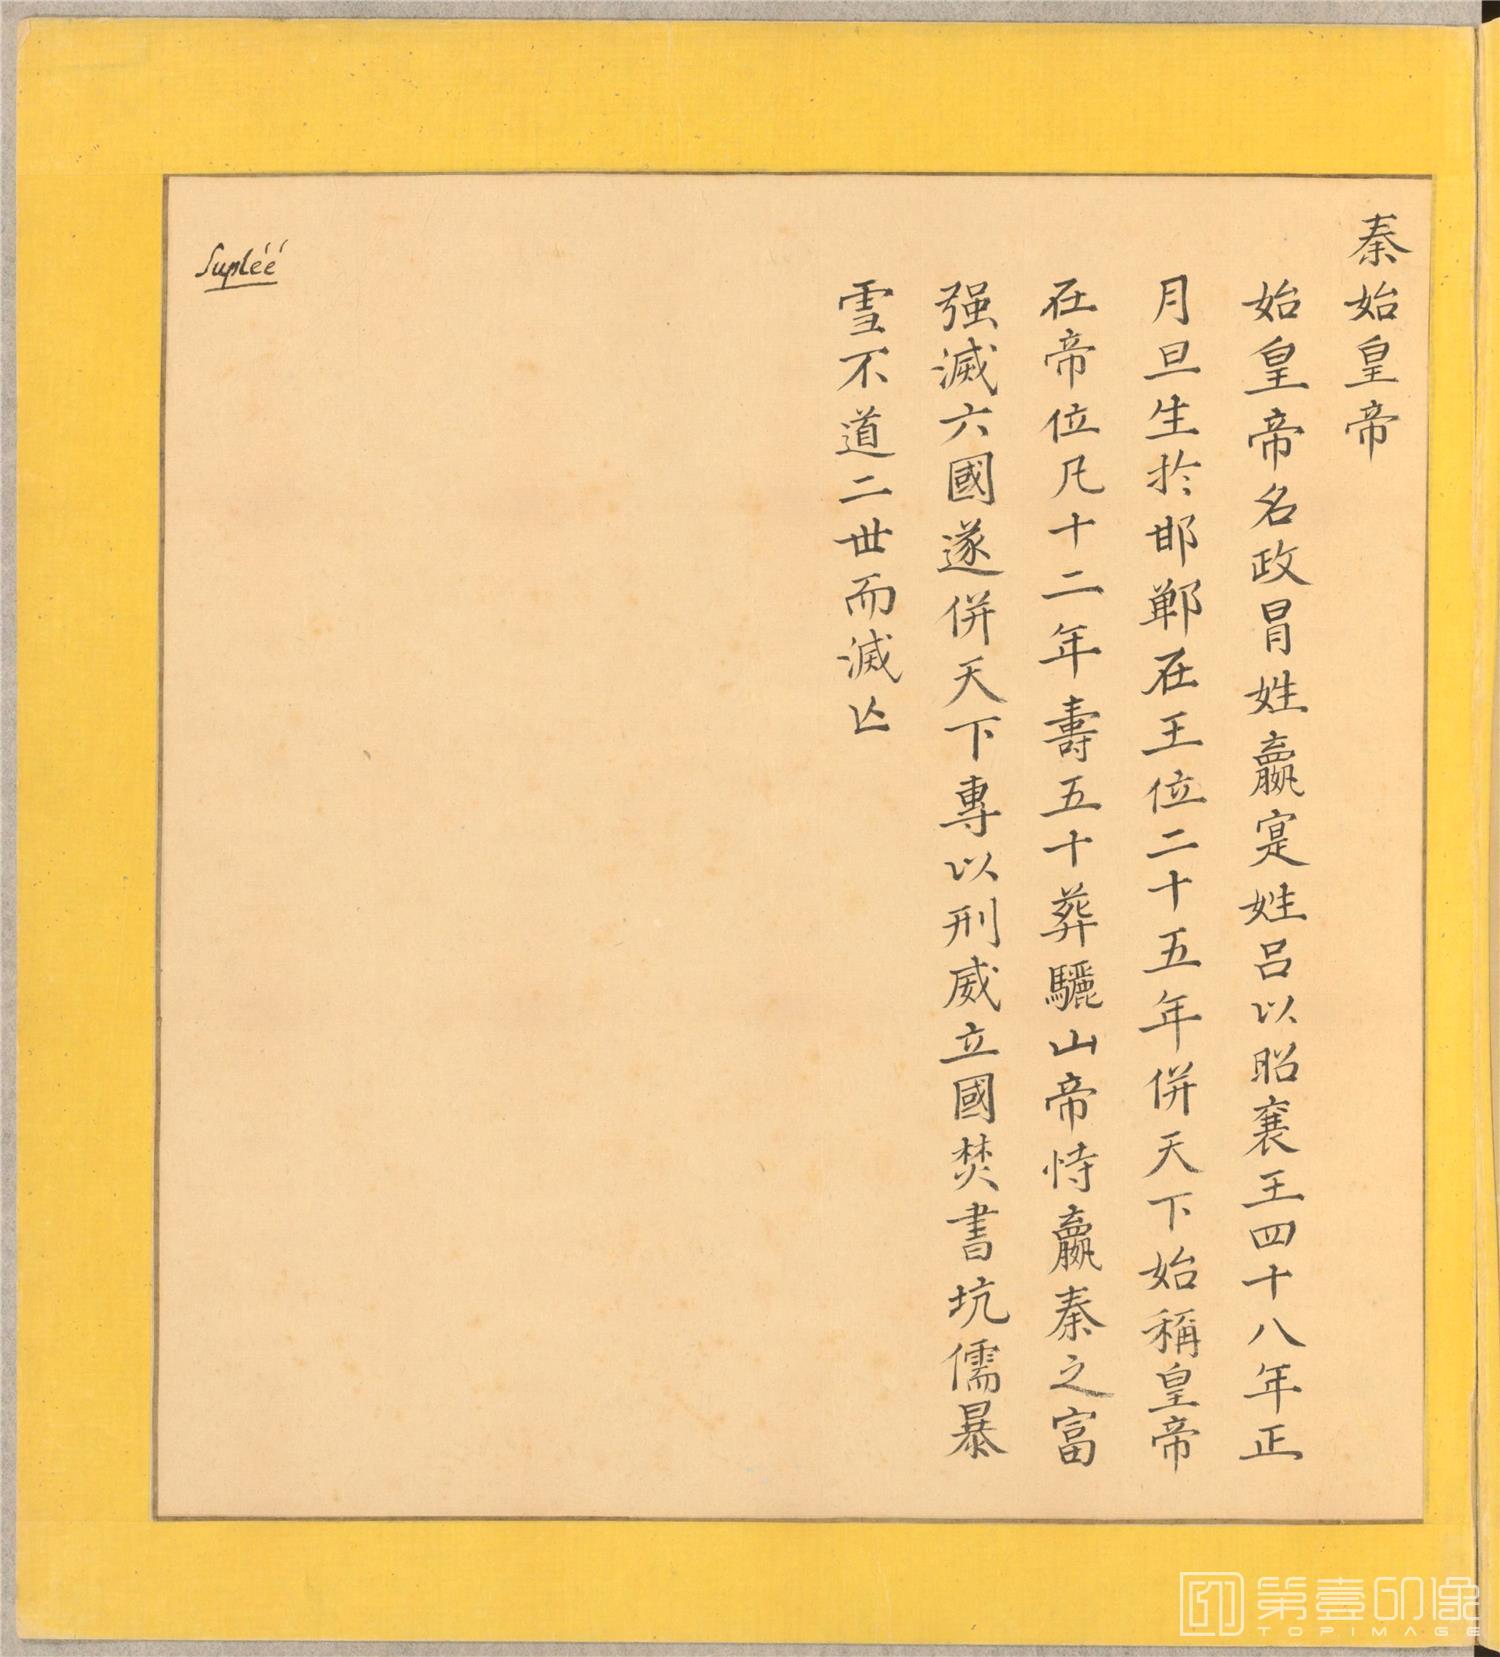 秦始皇帝
始皇帝名政冐姓嬴寔姓呂以昭襄王四十八年正
月旦生於邯鄲在王位二十五年併天下始稱皇帝
在帝位凡十二年壽五十葬驪山帝恃嬴秦之富
强滅六國遂併天下專以刑威立國焚書坑儒暴
雪不道二世而滅亾
Supléé
第壹印像
TOPIMAGE